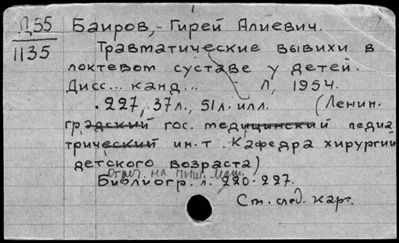 Д55 Баиров, Гирей Алиевич.
1135 Травматические вывихи в
локтевом суставе у детей.
Дисс... канд... Л, 1954.
227, 37л., 51л. илл. (Ленин-
градский гос. медицинский педиа
трический ин-т. Кафедра хирургии
детского возраста)
Отпеч. на пиш. маш.
Библиогр. л. 220-227.
См. след. карт.